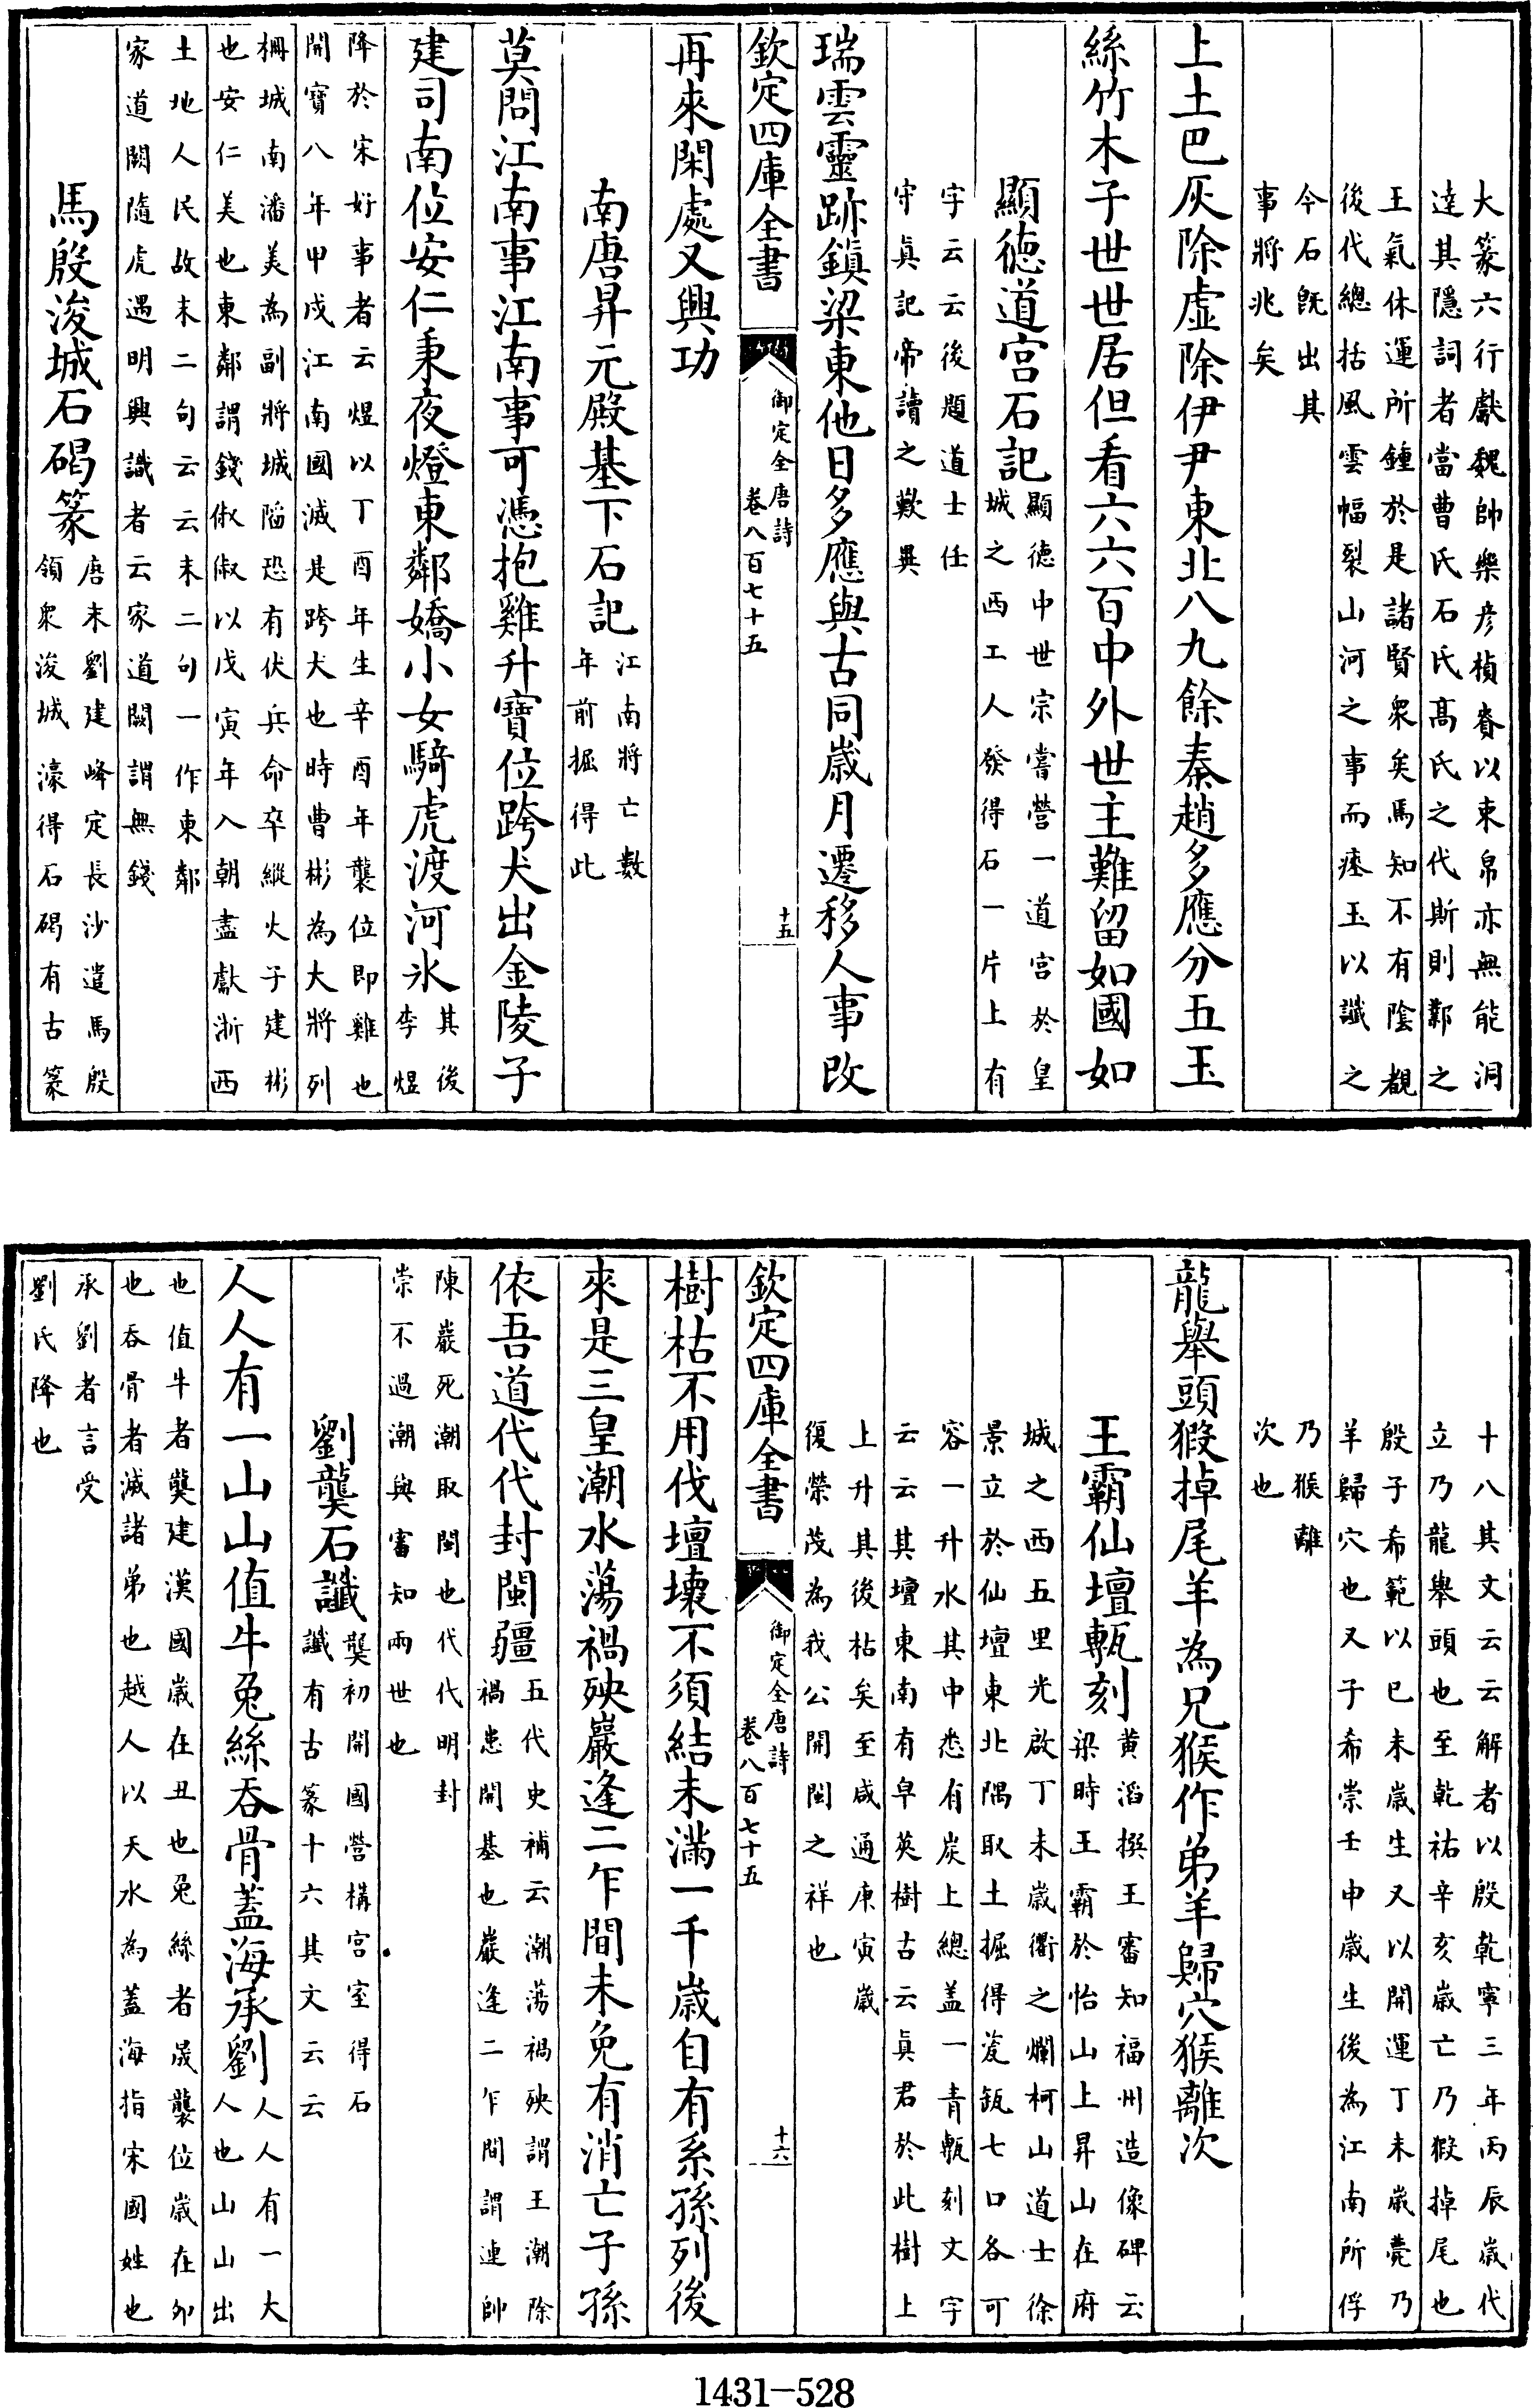 大篆六行獻魏帥樂彦楨賚以束帛亦無能洞
達其隱詞者當曹氏石氏髙氏之代斯則鄴之
王氣休運所鍾於是諸賢衆矣馬知不有陰覩
後代總括風雲幅裂山河之事而瘞玉以讖之
今石既出其
事將兆矣
上土巴灰除虚除伊尹東北八九餘秦趙多應分五玉
絲竹木子世世居但看六六百中外世主難留如國如
顯徳道宫石記
顯德中世宗嘗營一道宫於皇
城之西工人發得石一片上有
字云云後題道士任
守眞記帝讀之歎異
瑞雲靈跡鎮梁東他日多應與古同嵗月遷移人事改
欽定四庫全書
御定全唐詩
卷八百七十五
十五
再來閑處又興功
南唐昇元殿基下石記
江南將亡數
年前掘得此
莫問江南事江南事可憑抱雞升寶位跨犬出金陵子
建司南位安仁秉夜燈東鄰嬌小女騎虎渡河氷
其後
李煜
降於宋好事者云煜以丁酉年生辛酉年襲位即雞也
開寶八年甲戌江南國滅是跨犬也時曹彬為大將列
栅城南潘美為副將城陷恐有伏兵命卒縱火子建彬
也安仁美也東鄰謂錢俶俶以戊寅年入朝盡獻浙西
土地人民故末二句云云末二句一作東鄰
家道闕隨虎遇明興識者云家道闕謂無錢
馬殷浚城石碣篆
唐末劉建峰定長沙遣馬殷
領衆浚城濠得石碣有古篆
十八其文云云解者以殷乾寧三年丙辰嵗代
立乃龍舉頭也至乾祐辛亥嵗亡乃猳掉尾也
殷子希範以巳未嵗生又以開運丁未嵗薨乃
羊歸穴也又子希崇壬申嵗生後為江南所俘
乃猴離
次也
龍舉頭猳掉尾羊為兄猴作弟羊歸穴猴離次
王霸仙壇甎刻
黄滔撰王審知福州造像碑云
梁時王霸於怡山上昇山在府
城之西五里光啟丁未嵗衢之爛柯山道士徐
景立於仙壇東北隅取土掘得瓷瓿七口各可
容一升水其中悉有炭上總盖一青甎刻文字
云云其壇東南有皁莢樹古云眞君於此樹上
上升其後枯矣至咸通庚寅嵗
復榮茂為我公開閩之祥也
欽定四庫全書
御定全唐詩
卷八百七十五
十六
樹枯不用伐壇壊不須結未滿一千嵗自有系孫列後
來是三皇潮水蕩禍殃巖逢二乍間未免有消亡子孫
依吾道代代封閩疆
五代史補云潮蕩禍殃謂王潮除
禍患開基也巖逢二乍間謂連帥
陳巖死潮取閩也代代明封
崇不過潮與審知兩世也
劉龑石讖
龑初開國營構宫室得石
讖有古篆十六其文云云
人人有一山山值牛兔絲吞骨蓋海承劉
人人有一大
人也山山出
也值牛者龑建漢國嵗在丑也兔絲者晟襲位嵗在卯
也吞骨者滅諸弟也越人以天水為蓋海指宋國姓也
承劉者言受
劉氏降也
1431-528